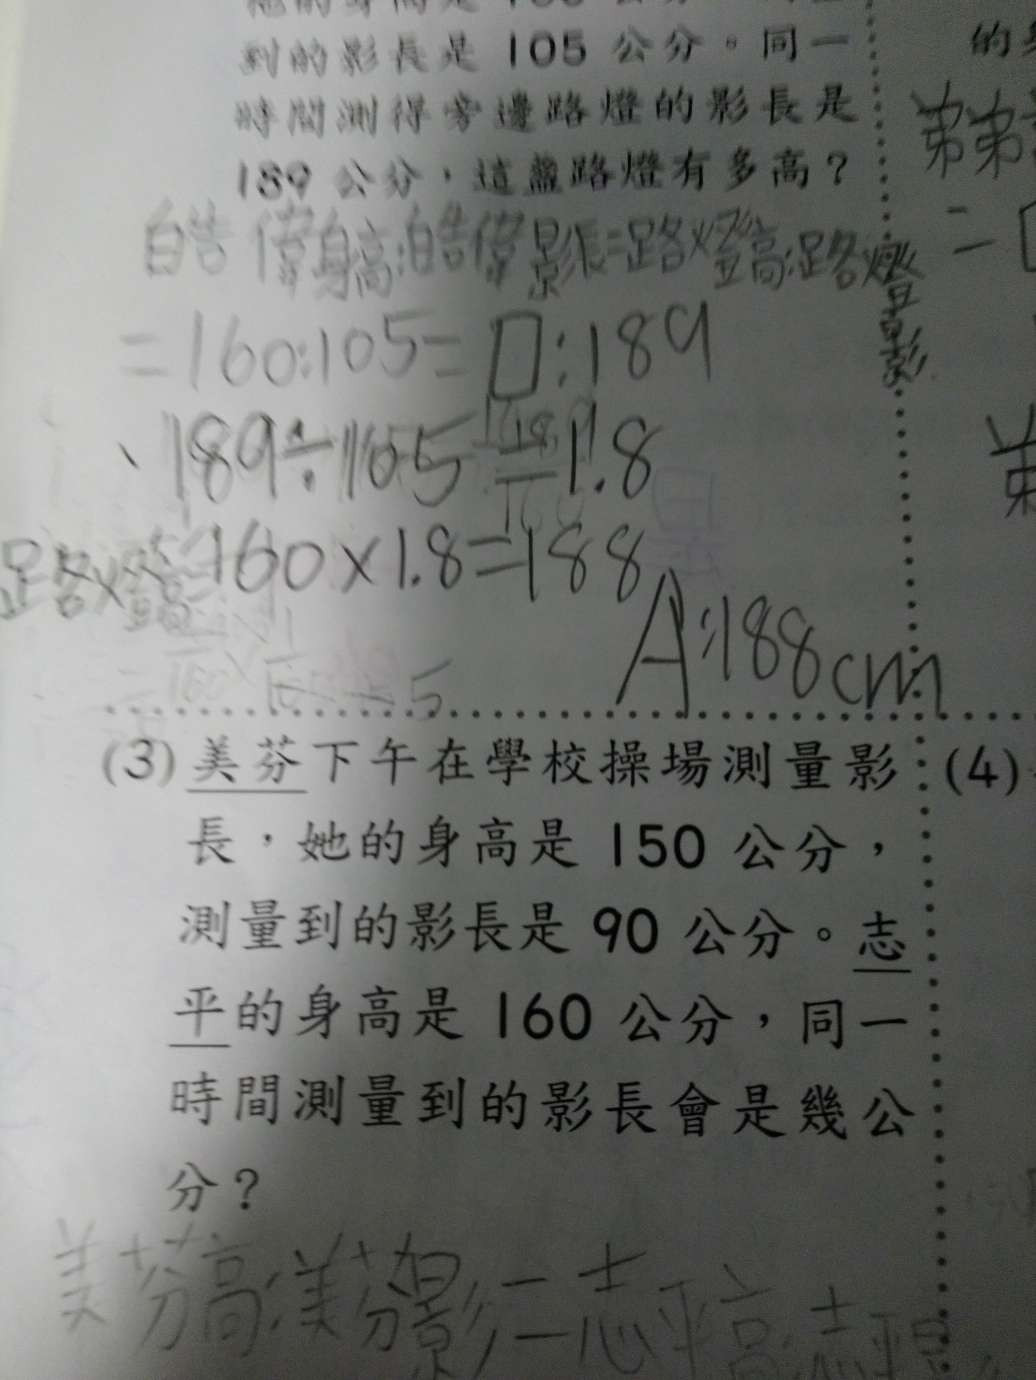 到的影長是 105 公分。同一
時間測得旁邊路燈的影長是
189 公分，這盞路燈有多高？
皓偉身高:皓偉影長=路燈高:路燈影
=160:105=□:189
189÷105=1.8
路燈=160×1.8=188
A:188cm
(3) 美芬下午在學校操場測量影
長，她的身高是 150 公分，
測量到的影長是 90 公分。志
平的身高是 160 公分，同一
時間測量到的影長會是幾公
分？
美芬高:美芬影=志平高:志平影
(4)
的
弟弟
=